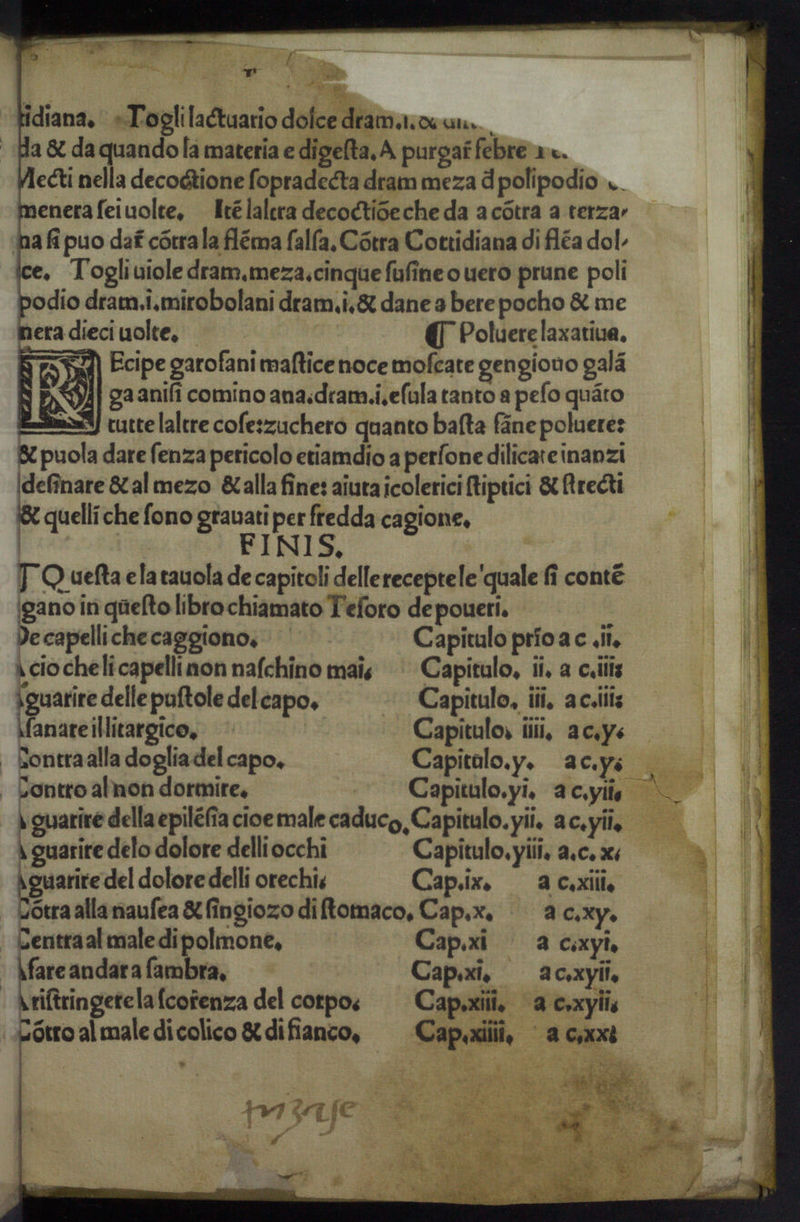 idiana. Togli lactuario dolce dram.i.
da & da quando la materia e digesta. A purgar̃ febre
lecti nella decoctione sopradecta dram meza d polipodio
menera sei uolte. Itē laltra decoctiōe che da a cōtra a terza-
na si puo dar̃ cōtra la flēma salsa. Cōtra Cottidiana di flēa dol-
ce. Togli uiole dram.meza.cinque susine o uero prune poli
podio dram.i.mirobolani dram.i.& dane a bere pocho & me
nera dieci uolte. ¶ Poluere laxatiua.
REcipe garofani mastice noce moscate gengiouo galā
ga anisi comino ana.dram.i.esula tanto a peso quāto
tutte laltre cose:zuchero quanto basta fāne poluere:
& puola dare senza pericolo etiamdio a persone dilicate inanzi
desinare & al mezo & alla fine: aiuta icolerici stiptici & strecti
& quelli che sono grauati per fredda cagione.
FINIS.
¶ Questa e la tauola de capitoli delle recepte le quale si contē
gano in questo libro chiamato Tesoro de poueri.
De capelli che caggiono. Capitulo prīo a c .ii.
A cio che li capelli non naschino mai. Capitulo. ii. a c.iii.
A guarire delle pustole del capo. Capitulo. iii. a c.iii.
A sanare il litargico. Capitulo. iiii. a c.y.
Contra alla doglia del capo. Capitulo.y. a c.y.
Contro al non dormire. Capitulo.yi. a c.yii.
A guarire della epilēsia cioe male caduco. Capitulo.yii. a c.yii.
A guarire delo dolore delli occhi Capitulo.yiii. a.c. x.
A guarire del dolore delli orechi. Cap.ix. a c.xiii.
Cōtra alla nausea & singiozo di stomaco. Cap.x. a c.xy.
Centra al male di polmone. Cap.xi a c.xyi.
A fare andar a sambra. Cap.xi. a c.xyii.
A ristringere la scorenza del corpo. Cap.xiii. a c.xyii.
Cōtro al male di colico & di fianco. Cap.xiiii. a c.xxi